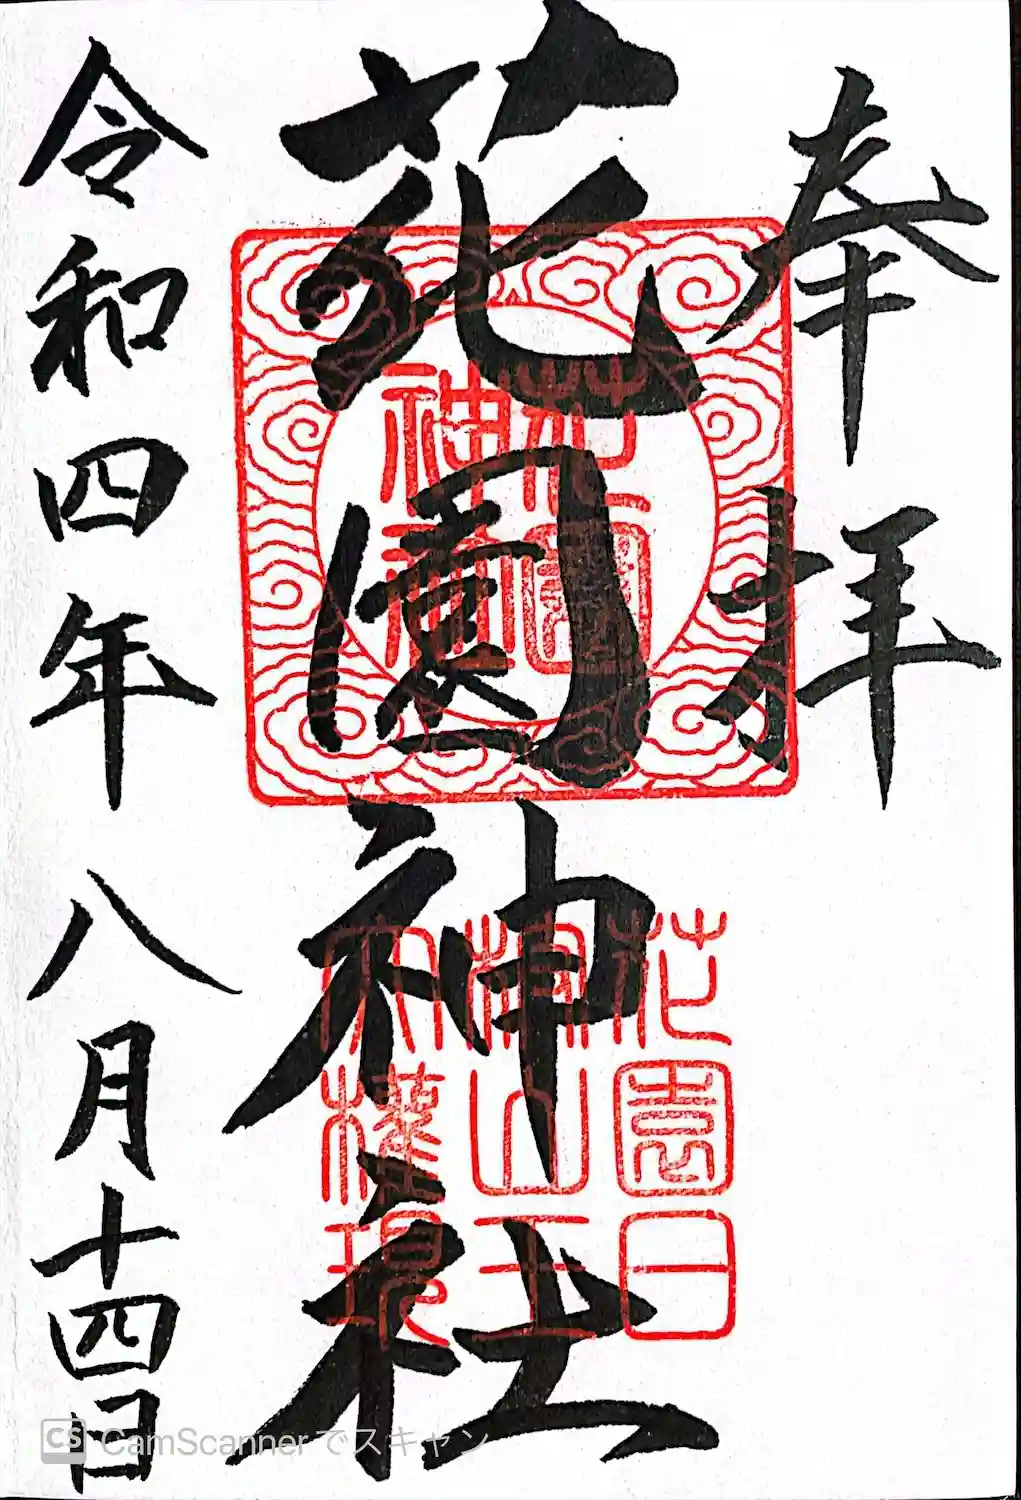 奉拝
花園神社
令和四年八月十四日
花園神社
花園日
枝山王
大権現
CS CamScannerでスキャン